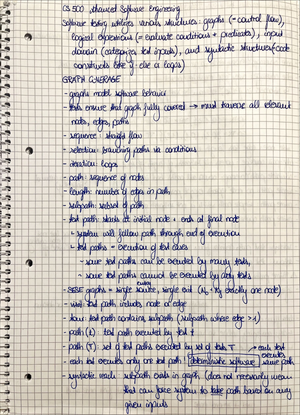 CS 500 Advanced Software Engineering
Software testing utilizes various structures: graphs (= control flow),
logical expressions (= evaluate conditions + predicates), input
domain (categorize test inputs), and syntactic structures (code
constructs like if else or loops)
GRAPH COVERAGE
- graphs model software behavior
- tests ensure that graph fully covered → must traverse all relevant
nodes, edges, paths
- sequence: straight flow
- selection: branching paths via conditions
- iteration: loops
- path: sequence of nodes
- length: number of edges in path
- subpath: subset of path
- test path starts at initial node + ends at final node
↳ system will follow path through end of execution
- test paths = execution of test cases
~ some test paths can be executed by many tests,
~ some test paths cannot be executed by any tests
- SESE graphs = single entry, single exit (N₀ + Nf exactly one node)
- visit: test path includes node or edge
- tour: test path contains subpath (subpath where edge > 1)
- path (t) test path executed by test t
- path (T) set of test paths executed by set of tests T → each test
- each test executes only one test path! deterministic software executes same path
- syntactic reach: subpath exists in graph (does not necessarily mean
that can force system to take path based on any
given inputs